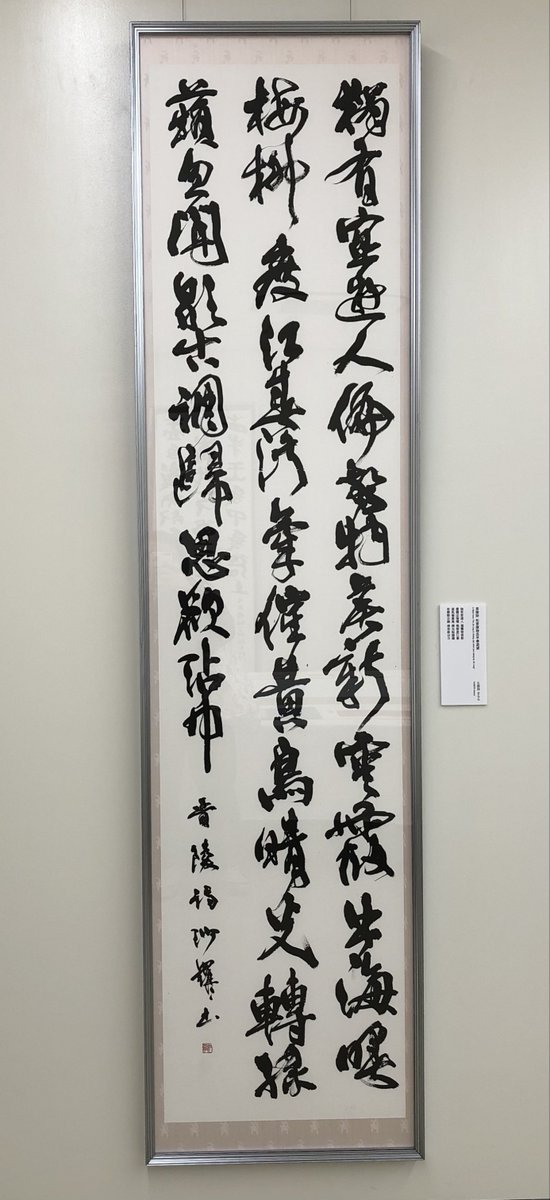 獨有宦遊人偏驚物候新雲霞出海曙
梅柳度江春淑氣催黃鳥晴光轉綠
蘋忽聞歌古調歸思欲沾巾
晉陵詩